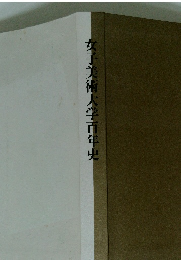 女子美術大学百年史